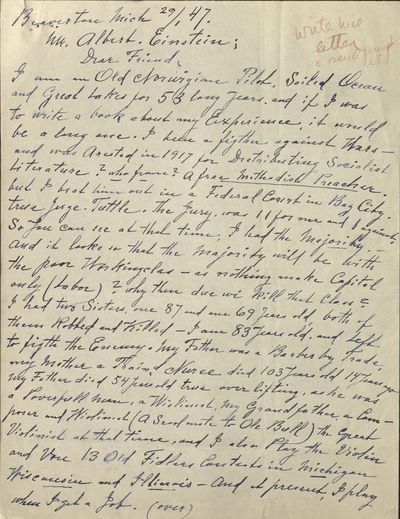 Beaverton Mich 29/47.
Write nice
letter
& send pamphlet
Mr. Albert. Einstein;
Dear Friend;
I am an Old Norwigian Pilot. Sailed Ocean
and Great Lakes for 53 long Years, and if I was
to write a book about my Experience, it would
be a long one. I been a figther against
and was Arested in 1917 for Distributing Socialist
Literature? who from? A free Methodish Preacher.
but I beat him out in a Federal Court in Bay City.
true Juge. Tuttle. the Jury. was 11 for me and 1 against,
So you can see at that time, I had the Majority
and it looks so that the Majority will be with
the poor Workingclas – as nothing make Capital
only (Labor)? why then due we kill that Class?
I had two Sisters, one 87 and one 69 Years old, both of
them Robbed and Killed – I am 83 Years old, and left
to figth the Enemy. My Father was a Barber by trade
my Mother a Traind Nurce died 103 Years old
my Father died 54 Years old true over lifting, as he was
a Powerfull man, a Violinist, my Grand father, a Com-
poser and Violinist (A Seadmate to Ole Bull) the Great
Violinist at that time, and I also Play the Violin
and Von 13 Old Fidlers Contests in Michigan
Wisconsin and Illinois – And at present, I play
when I get a Job. (over)